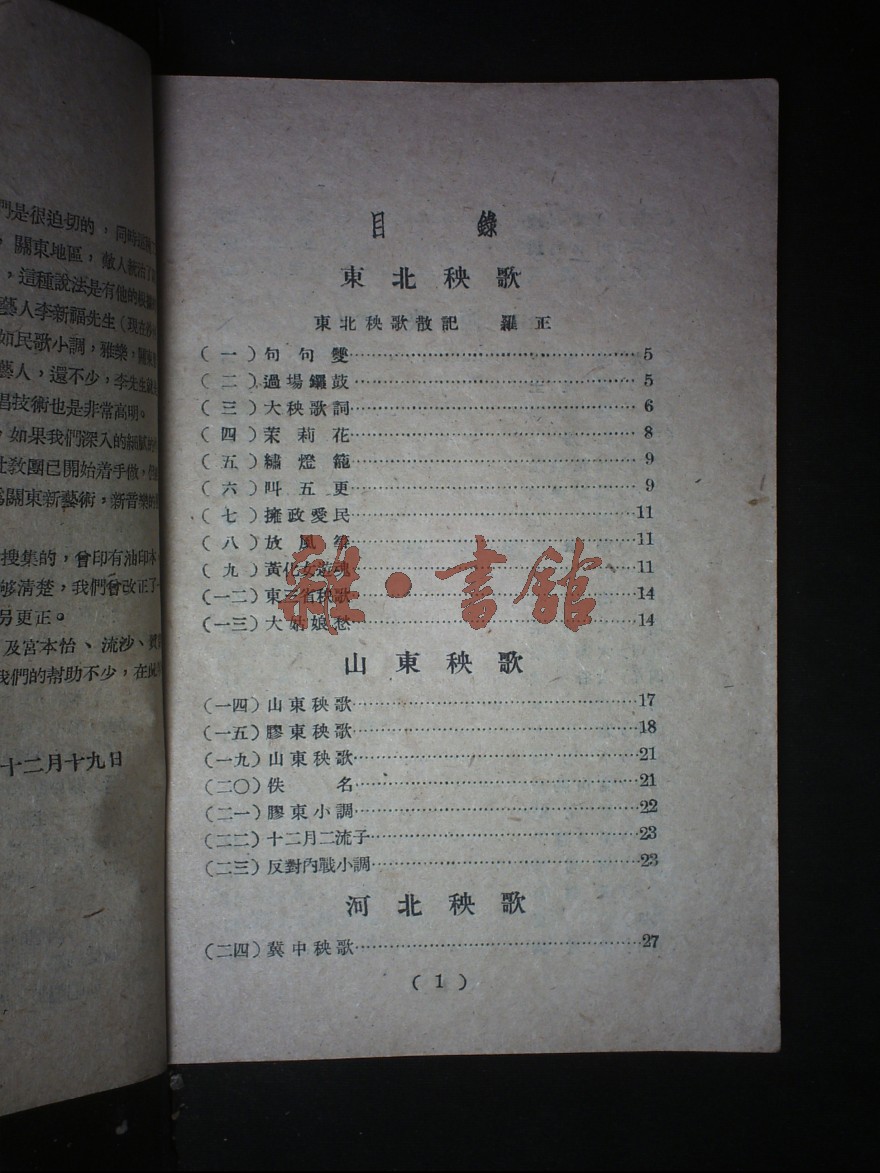 們是很迫切的，同時
，關東地區，敵人統治了
，這種說法是有他的根據
藝人李新福先生（現在
如民歌小調，雅樂，
藝人，還不少，李先生
昌技術也是非常高明。
，如果我們深入的細膩的
社教團已開始着手做，
爲關東新藝術，新音樂的
搜集的，曾印有油印本
够清楚，我們曾改正了一
另更正。
及宮本怡、流沙、
我們的幫助不少，在
十二月十九日
目 錄
東北秧歌
東北秧歌散記 羅正
（一）句句雙 5
（二）過場鑼鼓 5
（三）大秧歌詞 6
（四）茉莉花 8
（五）繡燈籠 9
（六）叫五更 9
（七）擁政愛民 11
（八）放風箏 11
（九）黃化女遊魂 11
（一二）東三省秧歌 14
（一三）大姑娘愁 14
雜·書館
山東秧歌
（一四）山東秧歌 17
（一五）膠東秧歌 18
（一九）山東秧歌 21
（二〇）佚名 21
（二一）膠東小調 22
（二二）十二月二流子 23
（二三）反對內戰小調 23
河北秧歌
（二四）冀中秧歌 27
（1）